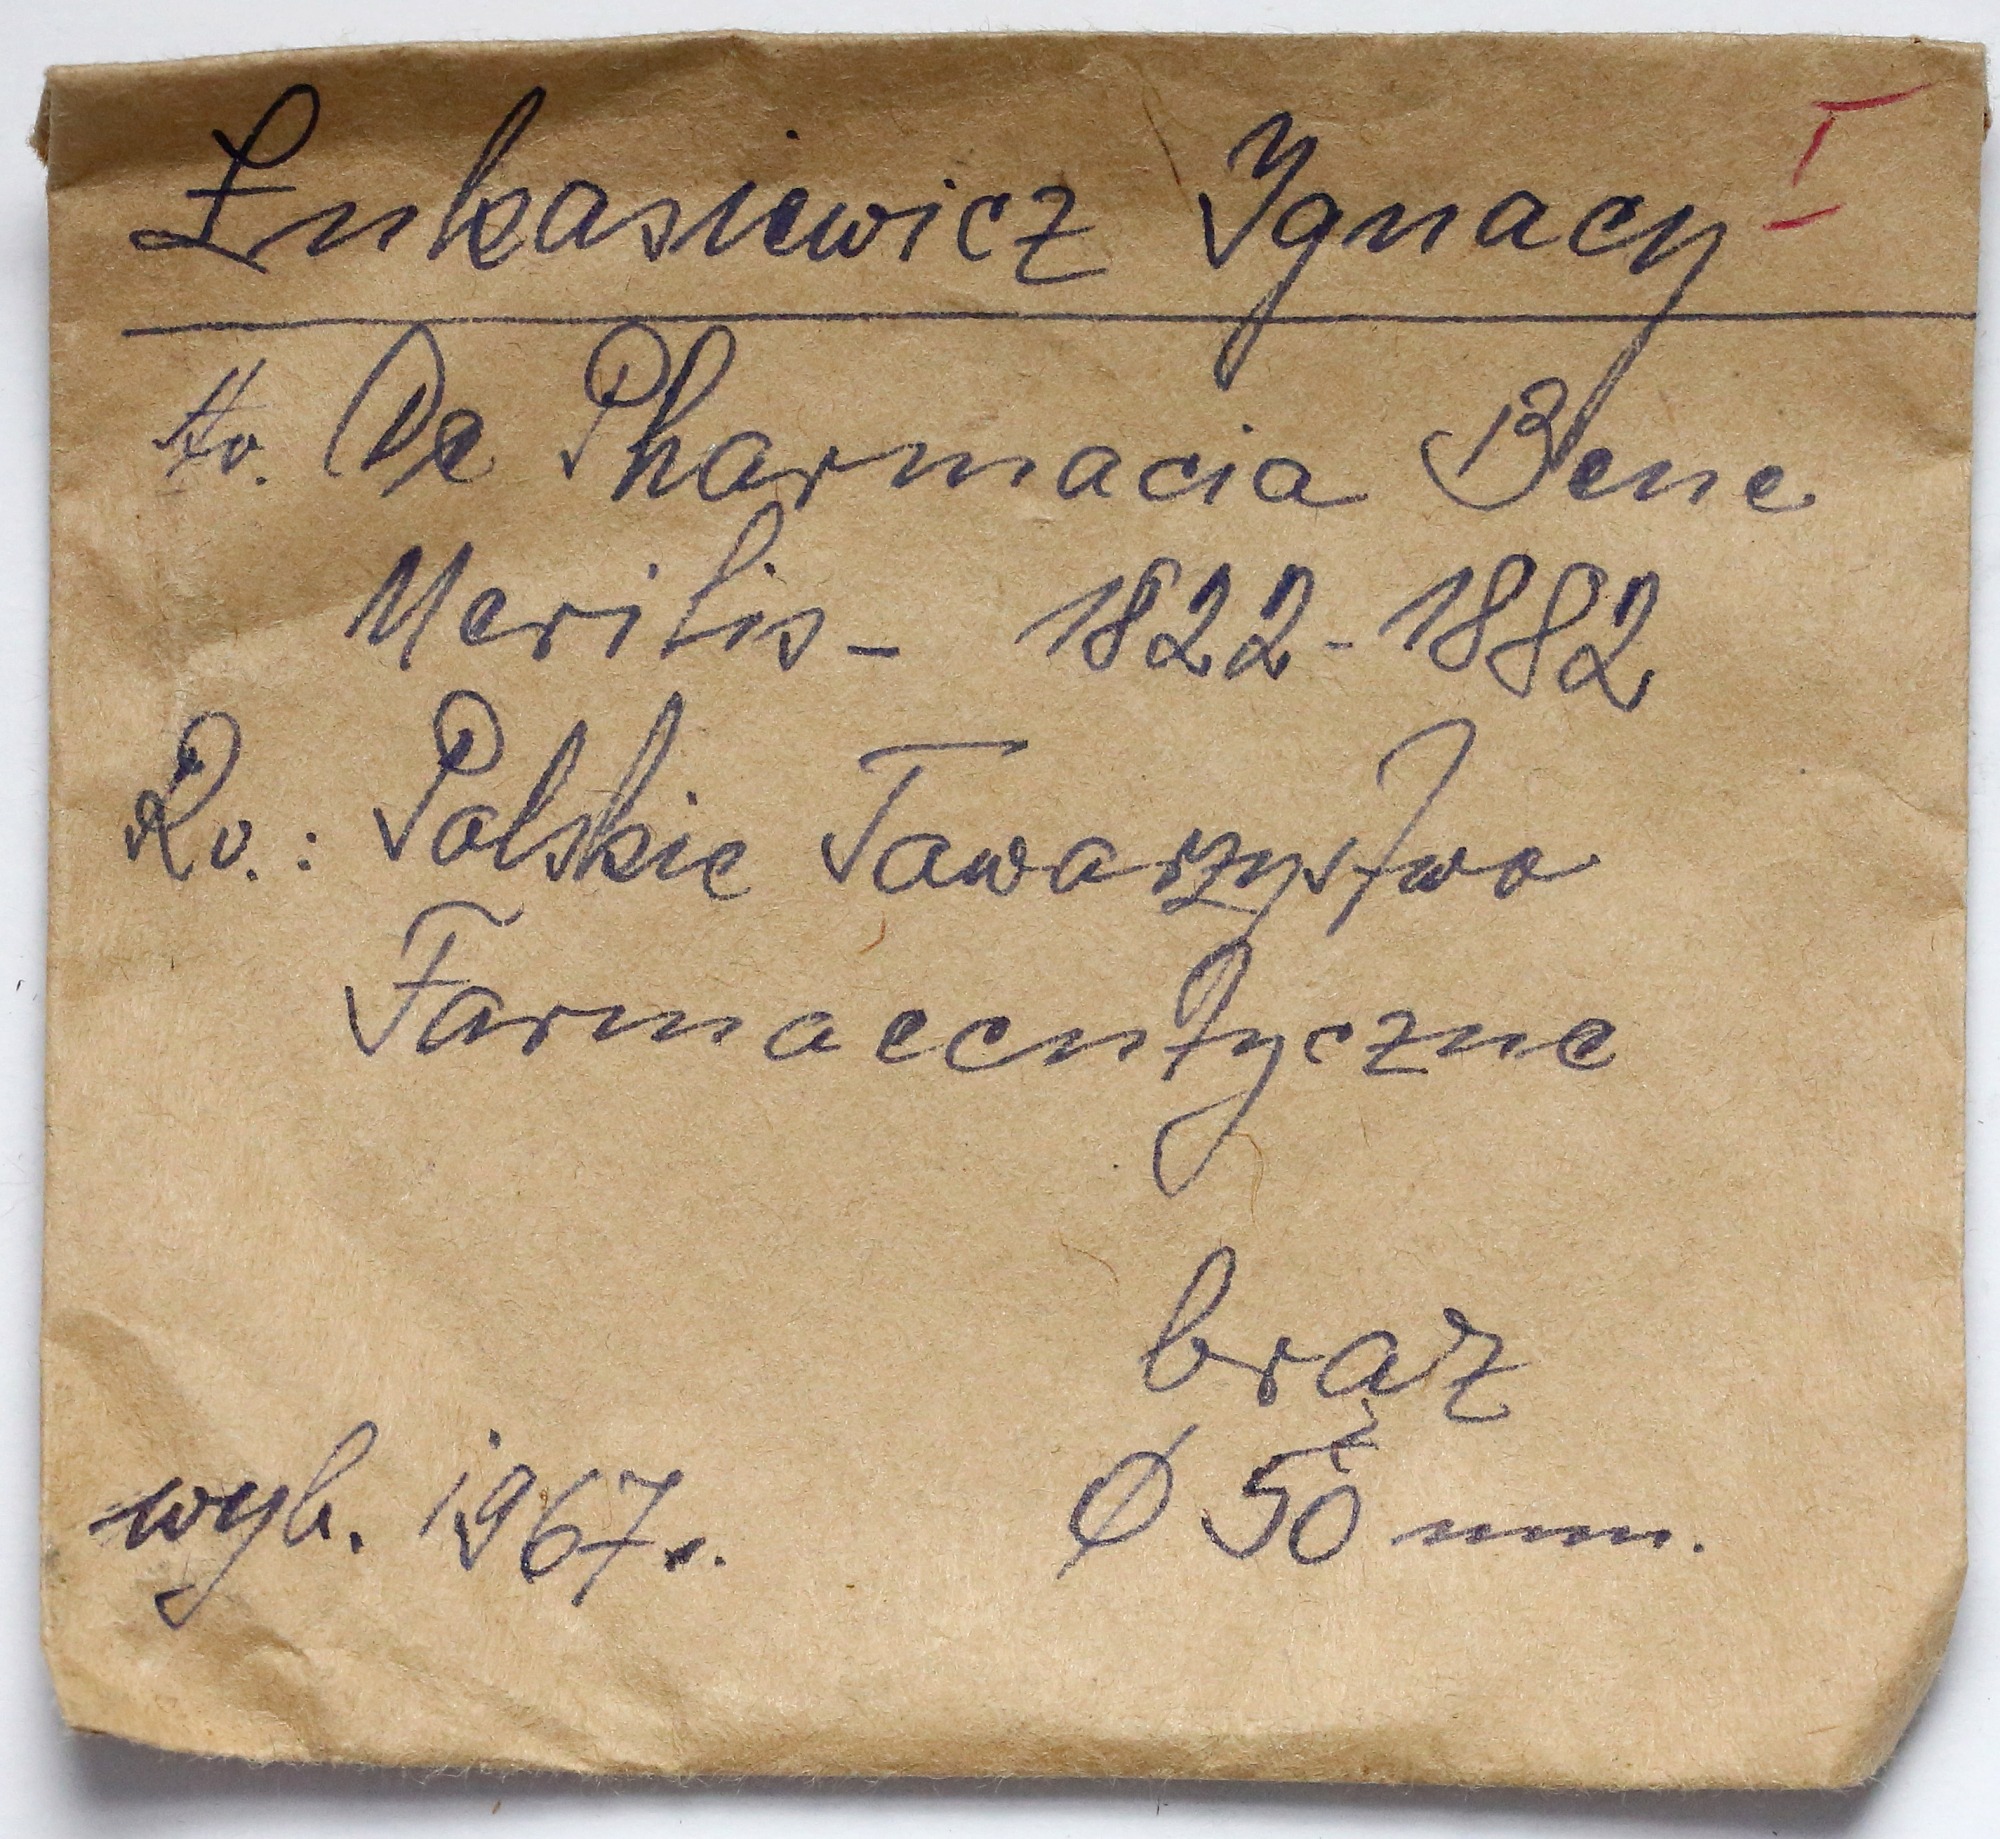 Łukasiewicz Ignacy I
Av. De Pharmacia Bene
Meritis - 1822-1882
Rv.: Polskie Towarzystwo
Farmaceutyczne
brąz
wyb. 1967r. Ø 50 mm.